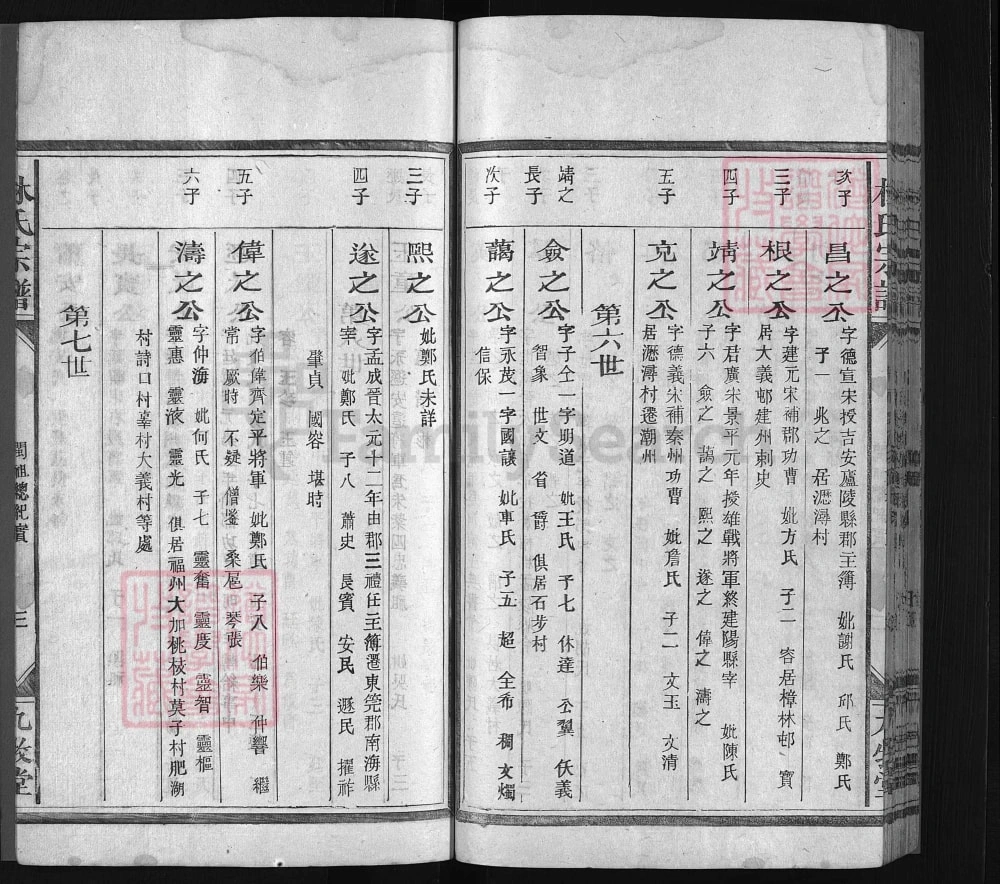 次子
昌之公 字德宣宋授吉安廬陵縣郡主簿 妣謝氏 邱氏 鄭氏
子一 兆之 居濹潯村
三子
根之公 字建元宋補郡功曹 妣方氏 子二 容居樟林邨 寶
居大義邨建州刺史
四子
靖之公 字君廣宋景平元年授雄戟將軍終建陽縣宰 妣陳氏
子六 僉之 藹之 熙之 遂之 偉之 濤之
五子
克之公 字德義宋補秦州功曹 妣詹氏 子二 文玉 文清
居濹潯村遷潮州
第六世
靖之長子
僉之公 字子仝一字明道 妣王氏 子七 休達 公翼 仸義
智象 世文 省 爵 俱居石步村
次子
藹之公 字永茂一字國讓 妣車氏 子五 超 全希 稠 文燭
信保
三子
熙之公 妣鄭氏未詳
四子
遂之公 字孟成晉太元十二年由郡三禮任主簿遷東筦郡南海縣
宰 妣鄭氏 子八 蕭史 長賓 安民 遜民 擢祚
肇貞 國容 堪時
五子
偉之公 字伯偉齊定平將軍 妣鄭氏 子八 伯樂 仲響 繼
常 厥時 不疑 僧鑒 桑扈 琴張
六子
濤之公 字仲海 妣何氏 子七 靈奮 靈度 靈智 靈樞
靈惠 靈液 靈光 俱居福州大加桃枝村莫子村肥湖
村詩口村辜村大義村等處
第七世
林氏宗譜
閩祖總紀實
三
九牧堂
FamilySearch